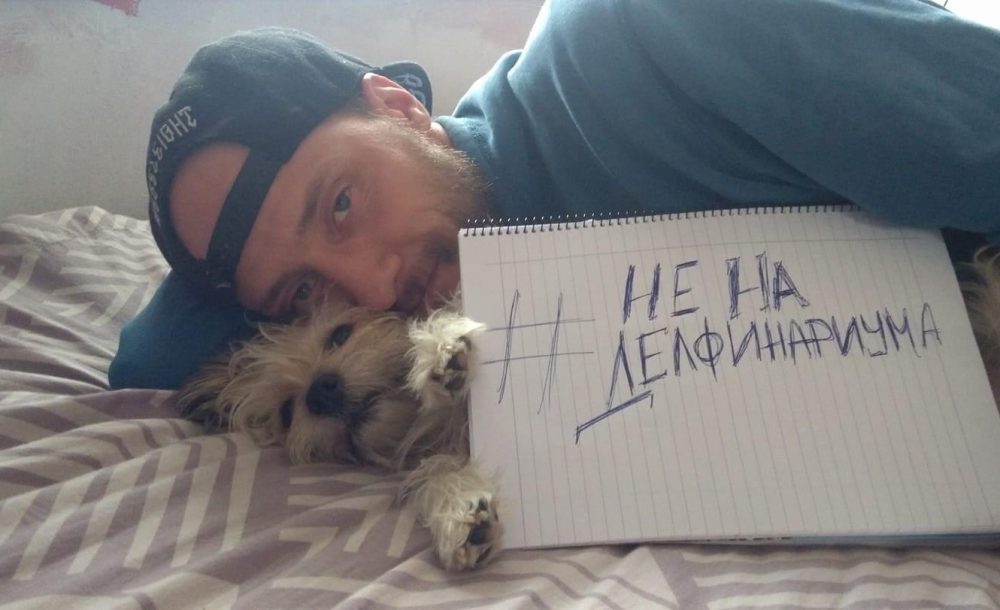 # НЕ НА
ДЕЛФИНАРИУМА